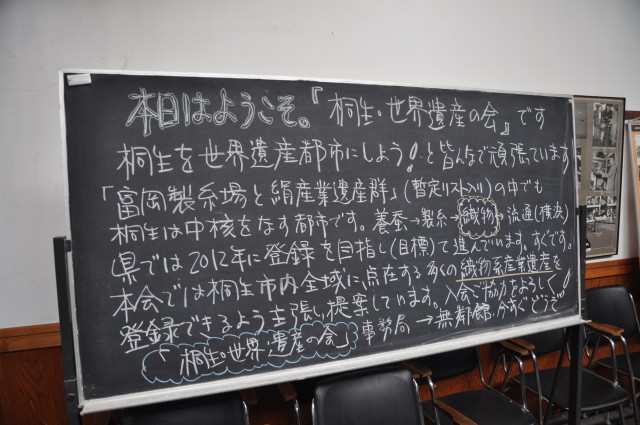 本日はようこそ。『桐生・世界遺産の会』です
桐生を世界遺産都市にしよう!と皆んなで頑張ています
「富岡製糸場と絹産業遺産群」(暫定リスト入り)の中でも
桐生は中核をなす都市です。養蚕→製糸→織物→流通(横浜)
県では2012年に登録を目指し(目標)て進んでいます。すぐです。
本会では桐生市内全域に点在する多くの織物系産業遺産を
登録できるよう主張し、提案しています。入会ご協力をよろしく!
「桐生・世界遺産の会」事務局→無鄰館、今すぐどうぞ